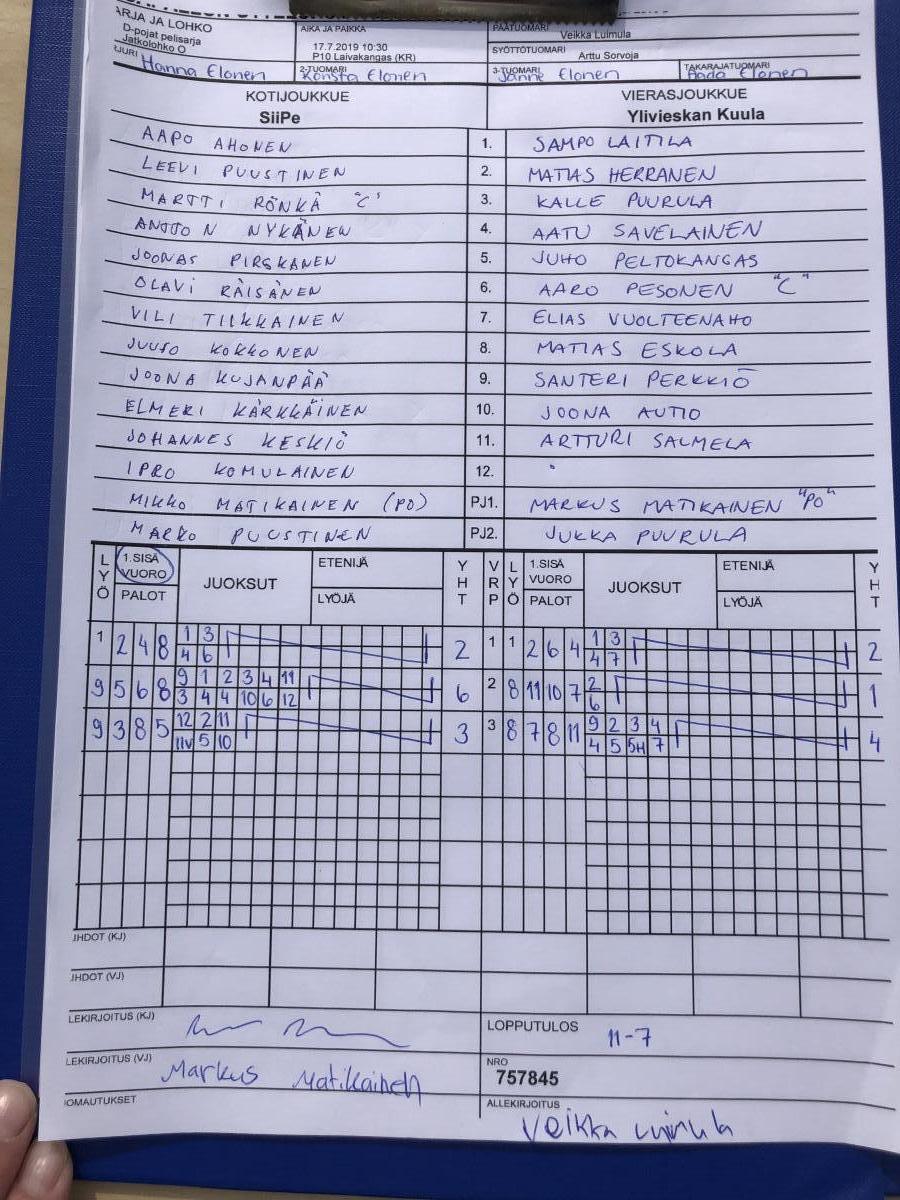 ARJA JA LOHKO AIKA JA PAIKKA PÄÄTUOMARI Veikka Luimula
D-pojat pelisarja
Jatkolohko O 17.7.2019 10:30 SYÖTTÖTUOMARI Arttu Sorvoja
P10 Laivakangas (KR)
Hanna Elonen 2-TUOMARI Konsta Elonen 3-TUOMARI Janne Elonen TAKARAJATUOMARI Aada Elonen
KOTIJOUKKUE VIERASJOUKKUE
SiiPe Ylivieskan Kuula
AAPO AHONEN 1. SAMPO LAITILA
LEEVI PUUSTINEN 2. MATIAS HERRANEN
MARTTI RÖNKÄ "C" 3. KALLE PUURULA
ANTTON NYKÄNEN 4. AATU SAVELAINEN
JOONAS PIRSKANEN 5. JUHO PELTOKANGAS
OLAVI RÄISÄNEN 6. AARO PESONEN "C"
VILI TIIKKAINEN 7. ELIAS VUOLTEENAHO
JUUSO KOKKONEN 8. MATIAS ESKOLA
JOONA KUJANPÄÄ 9. SANTERI PERKKIÖ
ELMERI KÄRKKÄINEN 10. JOONA AUTIO
JOHANNES KESKIÖ 11. ARTTURI SALMELA
IPRO KOMULAINEN 12.
MIKKO MATIKAINEN (PO) PJ1. MARKUS MATIKAINEN "PO"
MARKO PUUSTINEN PJ2. JUKKA PUURULA
LYÖ 1.SISÄ VUORO PALOT JUOKSUT ETENIJÄ LYÖJÄ YHT VRP LYÖ 1.SISÄ VUORO PALOT JUOKSUT ETENIJÄ LYÖJÄ YHT
1 2 4 8 1 3 2 1 1 2 6 4 1 3 2
4 6 4 7
9 5 6 8 9 1 2 3 4 11 6 2 8 11 10 7 2 1
3 4 4 10 6 12 6
9 3 8 5 12 2 11 3 3 8 7 8 11 9 2 3 4 4
11V 5 10 4 5 5H 7
JHDOT (KJ)
JHDOT (VJ)
LEKIRJOITUS (KJ) LOPPUTULOS 11-7
LEKIRJOITUS (VJ) Markus Matikainen NRO 757845
OMAUTUKSET ALLEKIRJOITUS Veikka Luimula